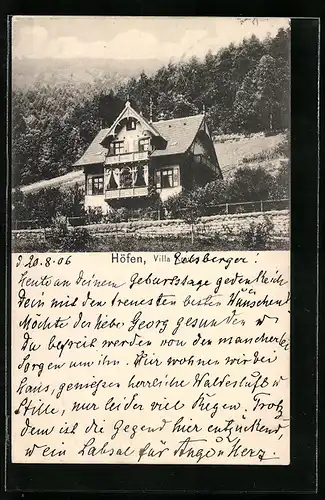 d 20.8.06
Höfen, Villa Eelsberger!
Heute an deinem Geburtstage gedenke ich
Dein mit den treuesten besten Wünschen!
Möchte der liebe Georg gesunden u
Du befreit werden von den mancherlei
Sorgen um ihn. Hier wohnen wir bei
Haus, geniessen herrliche Waldesluft u
Stille, nur leider viel Regen. Trotz
dem ist die Gegend hier entzückend,
u ein Labsal für Aug u Herz.